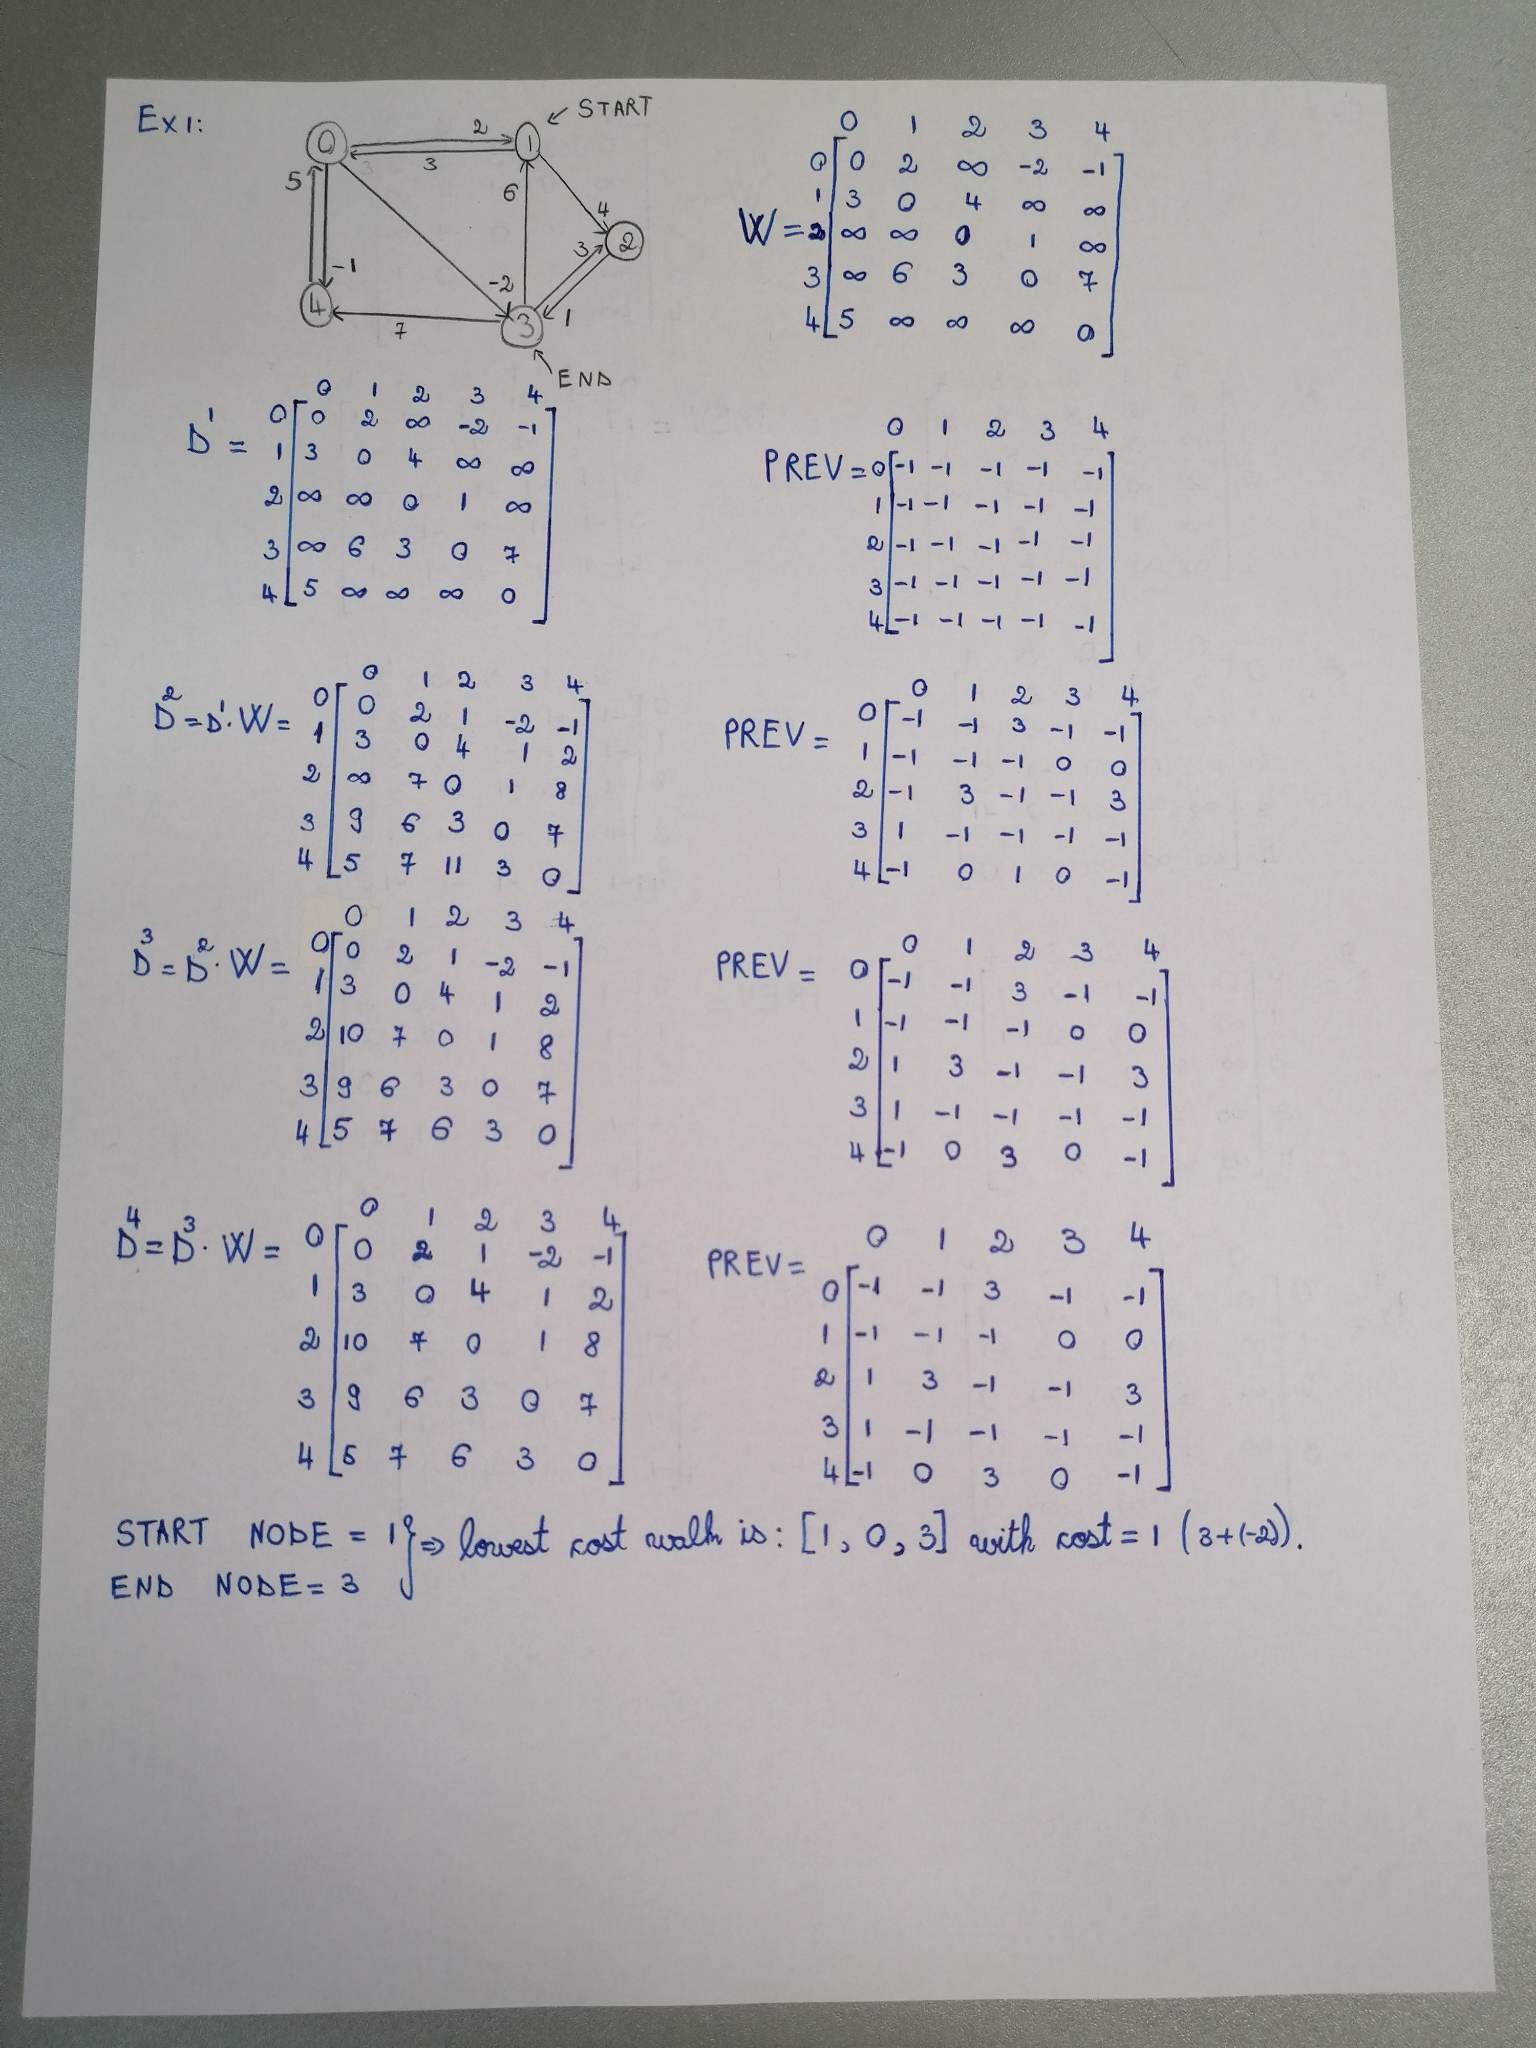 Ex1:
START
0 1 2 3 4
2 3 5 -1 6 4 3 -2 1 7
END
0 1 2 3 4
W = 0 [ 0 2 ∞ -2 -1 ]
1 [ 3 0 4 ∞ ∞ ]
2 [ ∞ ∞ 0 1 ∞ ]
3 [ ∞ 6 3 0 7 ]
4 [ 5 ∞ ∞ ∞ 0 ]
0 1 2 3 4
D¹ = 0 [ 0 2 ∞ -2 -1 ]
1 [ 3 0 4 ∞ ∞ ]
2 [ ∞ ∞ 0 1 ∞ ]
3 [ ∞ 6 3 0 7 ]
4 [ 5 ∞ ∞ ∞ 0 ]
0 1 2 3 4
PREV = 0 [ -1 -1 -1 -1 -1 ]
1 [ -1 -1 -1 -1 -1 ]
2 [ -1 -1 -1 -1 -1 ]
3 [ -1 -1 -1 -1 -1 ]
4 [ -1 -1 -1 -1 -1 ]
0 1 2 3 4
D² = D¹ · W = 0 [ 0 2 1 -2 -1 ]
1 [ 3 0 4 1 2 ]
2 [ ∞ 7 0 1 8 ]
3 [ 9 6 3 0 7 ]
4 [ 5 7 11 3 0 ]
0 1 2 3 4
PREV = 0 [ -1 -1 3 -1 -1 ]
1 [ -1 -1 -1 0 0 ]
2 [ -1 3 -1 -1 3 ]
3 [ 1 -1 -1 -1 -1 ]
4 [ -1 0 1 0 -1 ]
0 1 2 3 4
D³ = D² · W = 0 [ 0 2 1 -2 -1 ]
1 [ 3 0 4 1 2 ]
2 [ 10 7 0 1 8 ]
3 [ 9 6 3 0 7 ]
4 [ 5 7 6 3 0 ]
0 1 2 3 4
PREV = 0 [ -1 -1 3 -1 -1 ]
1 [ -1 -1 -1 0 0 ]
2 [ 1 3 -1 -1 3 ]
3 [ 1 -1 -1 -1 -1 ]
4 [ -1 0 3 0 -1 ]
0 1 2 3 4
D⁴ = D³ · W = 0 [ 0 2 1 -2 -1 ]
1 [ 3 0 4 1 2 ]
2 [ 10 7 0 1 8 ]
3 [ 9 6 3 0 7 ]
4 [ 5 7 6 3 0 ]
0 1 2 3 4
PREV = 0 [ -1 -1 3 -1 -1 ]
1 [ -1 -1 -1 0 0 ]
2 [ 1 3 -1 -1 3 ]
3 [ 1 -1 -1 -1 -1 ]
4 [ -1 0 3 0 -1 ]
START NODE = 1 } ⇒ lowest cost walk is: [1, 0, 3] with cost = 1 (3+(-2)).
END NODE = 3